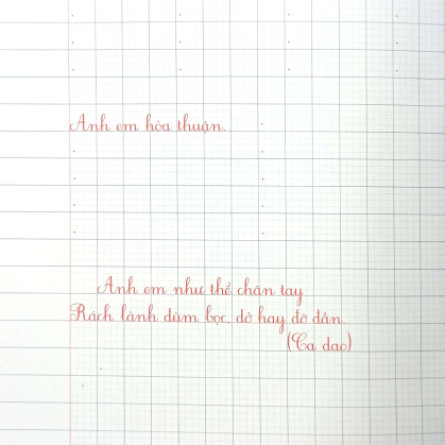 Anh em hòa thuận.
Anh em như thể chân tay
Rách lành đùm bọc, dở hay đỡ đần.
(Ca dao)